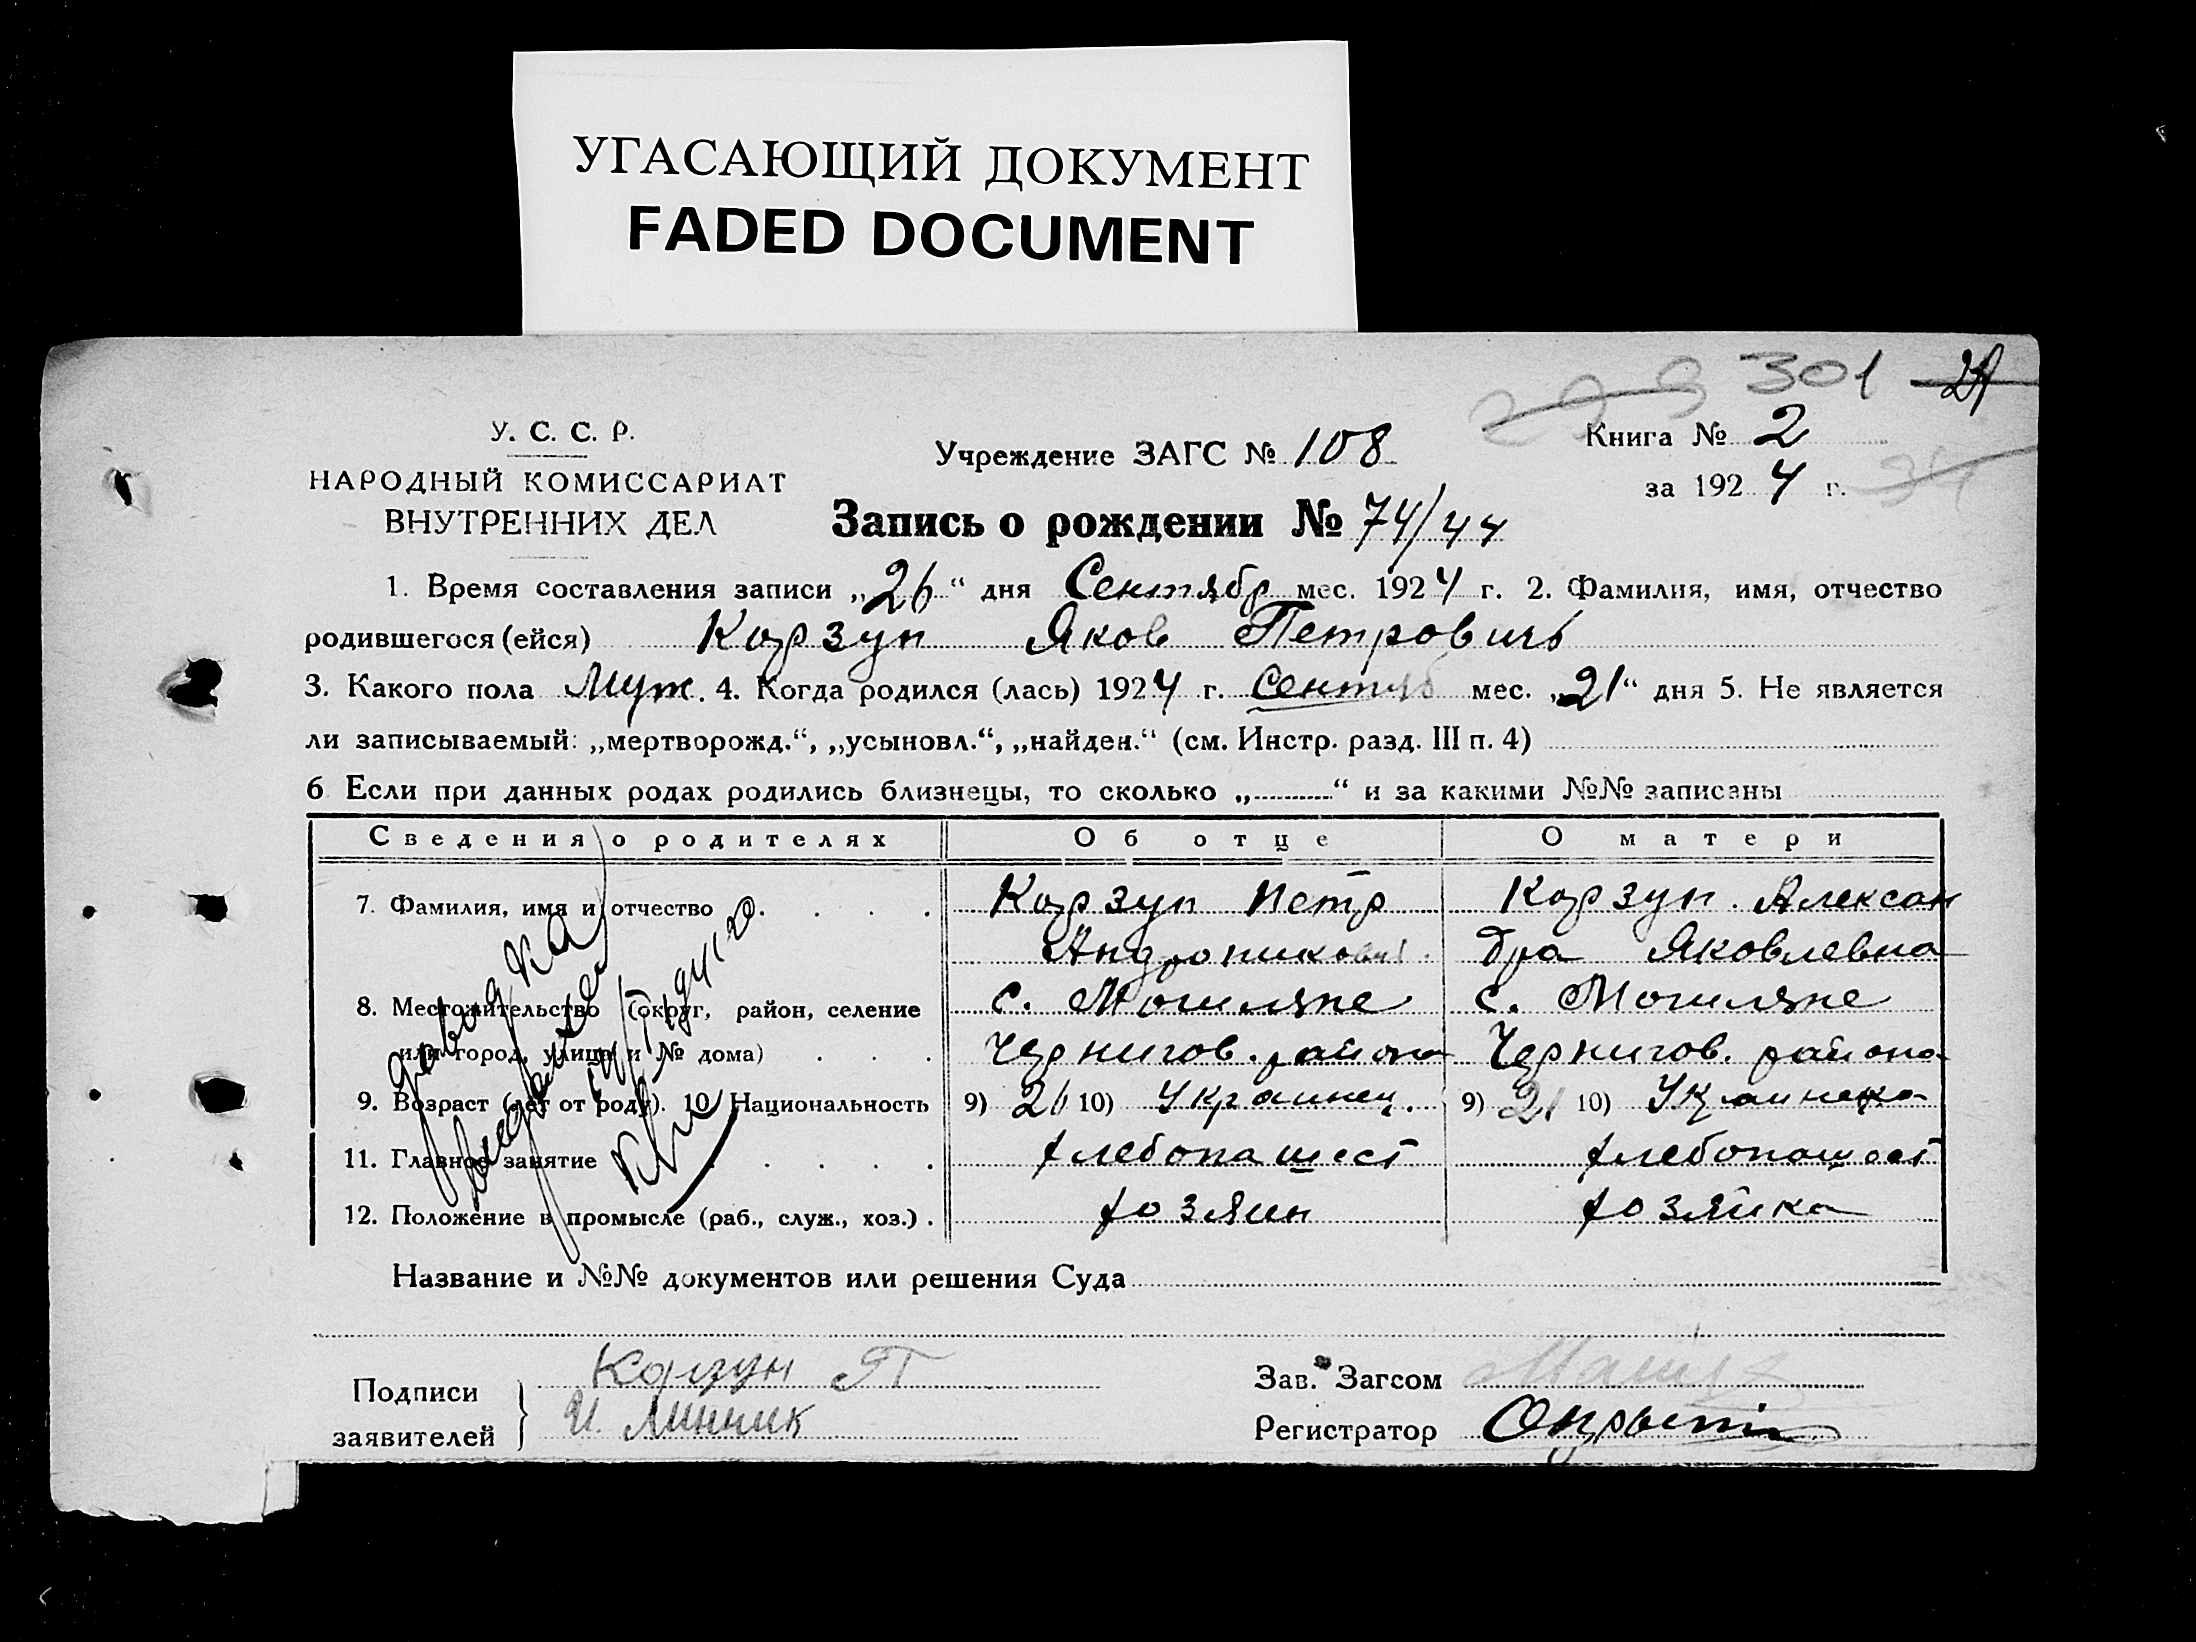 УГАСАЮЩИЙ ДОКУМЕНТ
FADED DOCUMENT
301
У. С. С. Р.
НАРОДНЫЙ КОМИССАРИАТ
ВНУТРЕННИХ ДЕЛ
Учреждение ЗАГС № 108
Книга № 2
за 1924 г.
Запись о рождении № 74/44
1. Время составления записи „26“ дня Сентябр мес. 1924 г. 2. Фамилия, имя, отчество
родившегося (ейся) Корзун Яков Петровичь
3. Какого пола Муж. 4. Когда родился (лась) 1924 г. Сентяб мес. „21“ дня 5. Не является
ли записываемый: „мертворожд.“, „усыновл.“, „найден.“ (см. Инстр. разд. III п. 4)
6 Если при данных родах родились близнецы, то сколько „ “ и за какими №№ записаны
Сведения о родителях Об отце О матери
7. Фамилия, имя и отчество Корзун Петр Корзун Алексан
Андроникович дра Яковлевна
8. Местожительство (округ, район, селение с. Могиляне с. Могиляне
или город, улица и № дома) Чернигов. района Чернигов. района
9. Возраст (лет от роду). 10. Национальность 9) 26 10) Украинец. 9) 21 10) Украинека
11. Главное занятие хлебопашест хлебопашест
12. Положение в промысле (раб., служ., хоз.) хозяин хозяйка
Название и №№ документов или решения Суда
Подписи
заявителей
Корзун П
И. Линник
Зав. Загсом
Регистратор